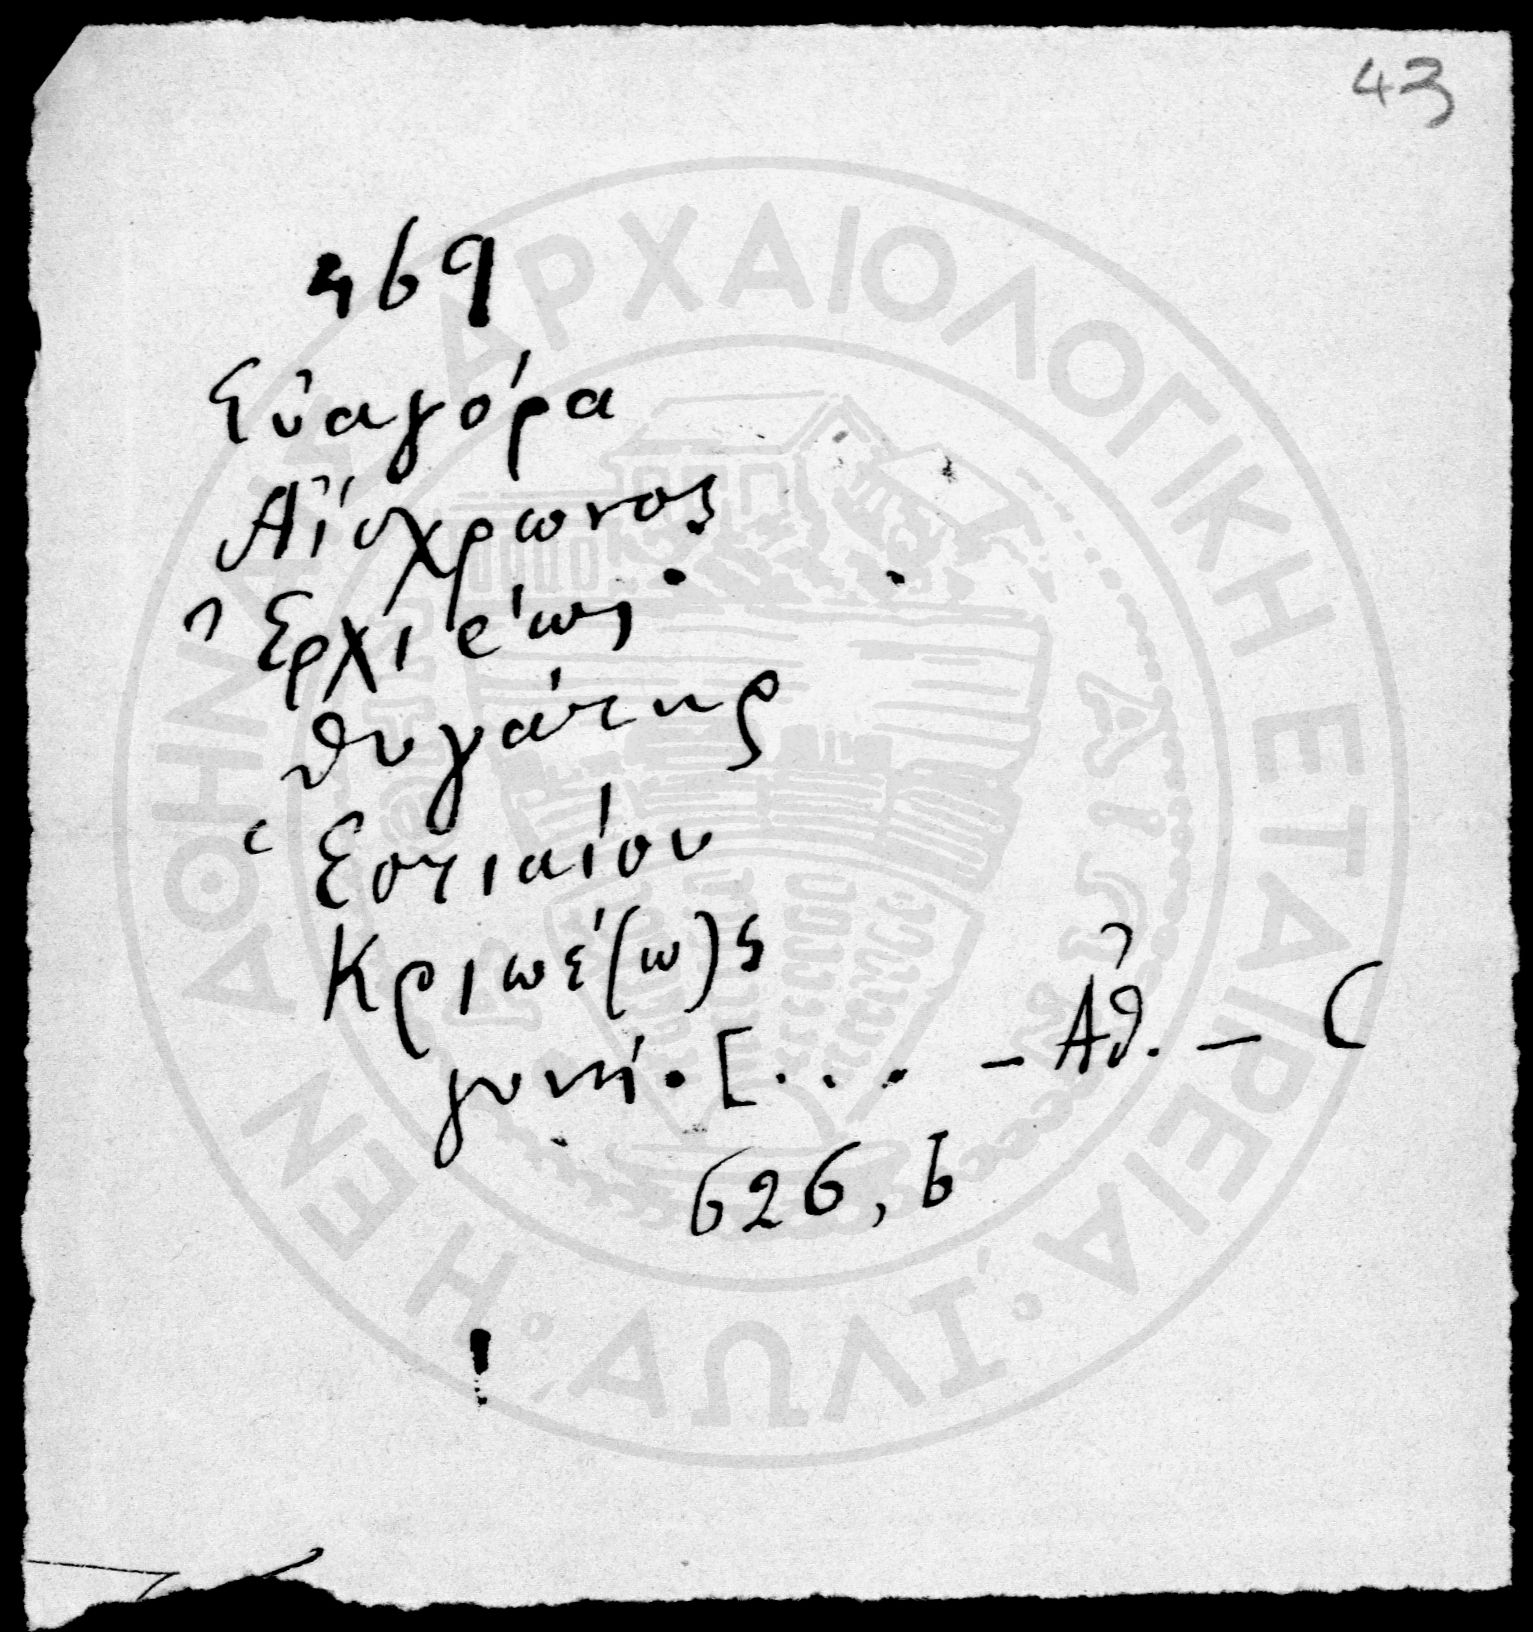 43
469
Εὐαγόρα
Αἴσχρωνος
Ἐρχιέως
θυγάτηρ
Ἑστιαίου
Κριωέ(ω)ς
γυνή. [... – Ἀθ. – C
626, b
Η ΕΝ ΑΘΗΝΑΙΣ ΑΡΧΑΙΟΛΟΓΙΚΗ ΕΤΑΙΡΕΙΑ